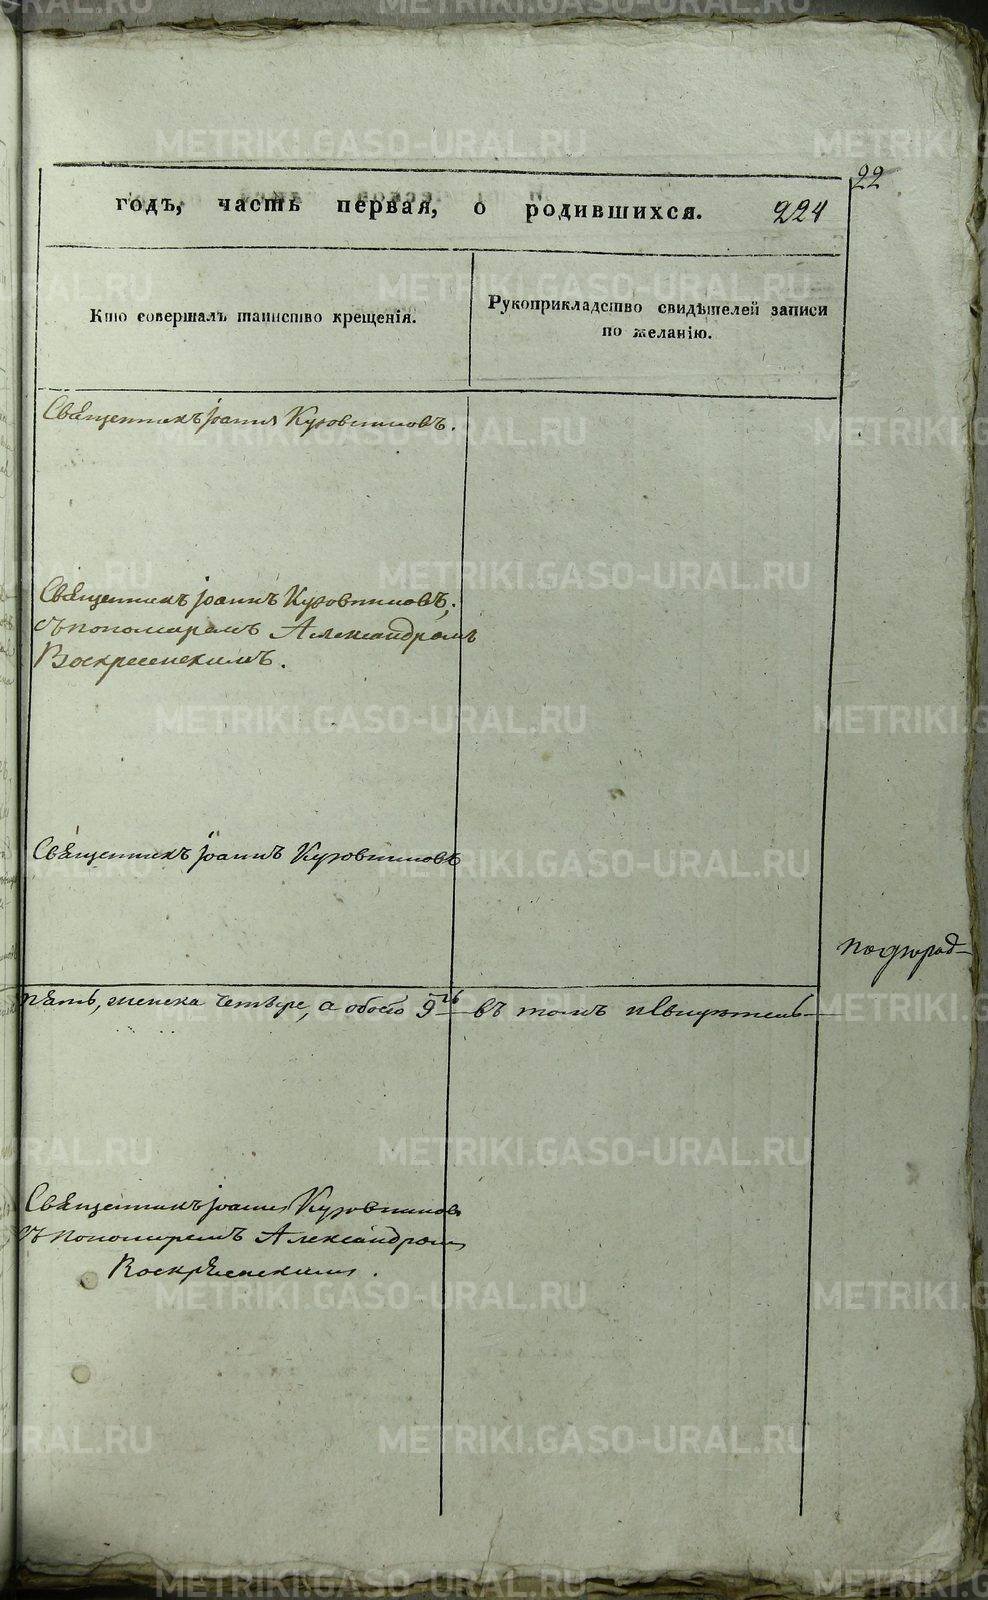 22
годъ, часть первая, о родившихся. 224
Кто совершалъ таинство крещенія.
Рукоприкладство свидѣтелей записи
по желанію.
Священникъ Іоаннъ Кузовниковъ.
Священникъ Іоаннъ Кузовниковъ,
съ пономаремъ Александромъ
Воскресенскимъ.
Священникъ Іоаннъ Кузовниковъ
пять, женска четыре, а обоего 9 въ томъ
Священникъ Іоаннъ Кузовниковъ
съ пономаремъ Александромъ
Воскресенскимъ.
METRIKI.GASO-URAL.RU